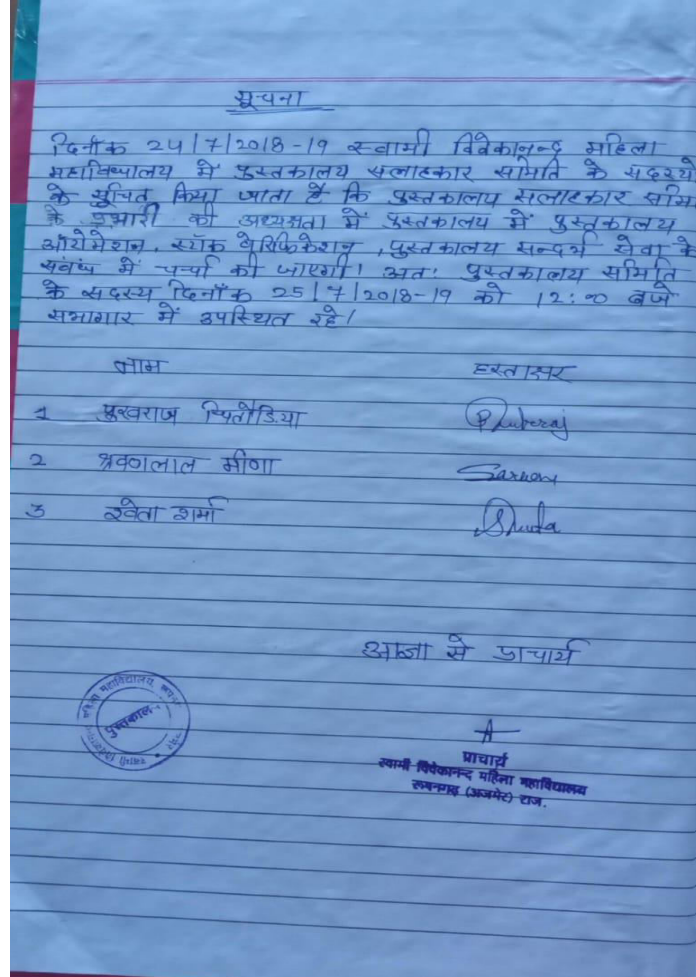 सूचना
दिनाँक 24/7/2018-19 स्वामी विवेकानन्द महिला
महाविद्यालय में पुस्तकालय सलाहकार समिति के सदस्यो
के सूचित किया जाता है कि पुस्तकालय सलाहकार समि
के प्रभारी की अध्यक्षता में पुस्तकालय में पुस्तकालय
ऑटोमेशन, स्टॉक वेरिफिकेशन, पुस्तकालय सन्दर्भ सेवा के
संबंध में चर्चा की जाएगी। अतः पुस्तकालय समिति
के सदस्य दिनाँक 25/7/2018-19 को 12:00 बजे
सभागार में उपस्थित रहे।
नाम हस्ताक्षर
1 पुखराज चितौडिया
2 श्रवणलाल मीणा Sarwan
3 श्वेता शर्मा Shweta
आज्ञा से प्राचार्य
महिला महाविद्यालय
पुस्तकालय
प्राचार्य
स्वामी विवेकानन्द महिला महाविद्यालय
रूपनगढ़ (अजमेर) राज.